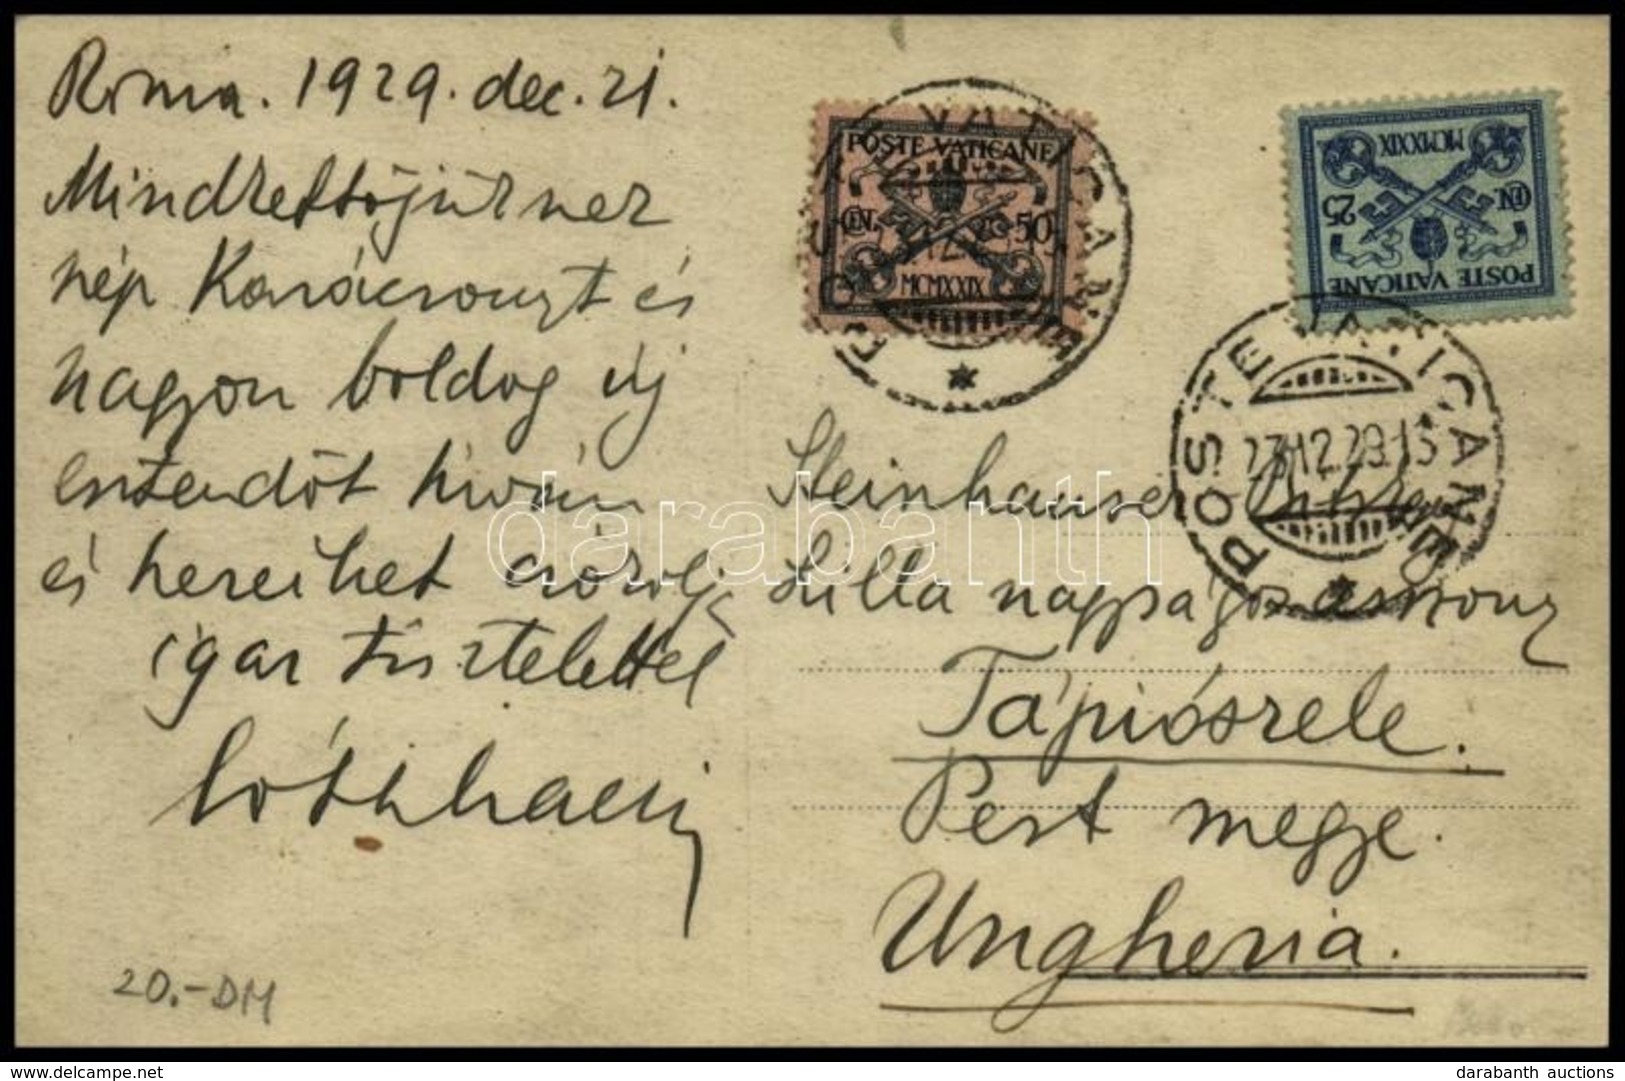 Roma. 1929. dec. 21.
Mindkettőjüknek
szép Karácsonyt és
nagyon boldog új
esztendőt kíván
és kezeiket csókolja
igaz tisztelettel
POSTE VATICANE
CEN. 50
MCMXXIX
POSTE VATICANE
POSTE VATICANE
CEN. 25
MCMXXIX
POSTE VATICANE
23.12.29.15
Steinhauser
Lilla nagyságos asszony
Tápiószele.
Pest megye.
Ungheria.
20.-DM
darabanth
darabanth auctions